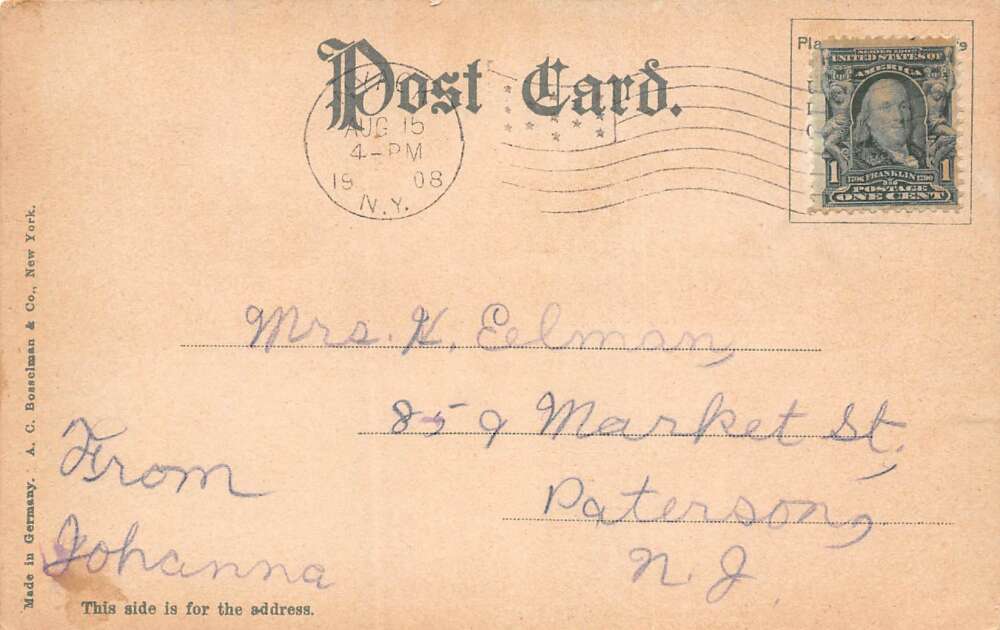 Post Card.
AUG 15
4-PM
19 08
N.Y.
Pla
SERIES 1902
UNITED STATES OF
AMERICA
1 1790 FRANKLIN 1790 1
POSTAGE
ONE CENT
Mrs. K. Eelman,
859 Market St.,
Paterson,
N. J.
From
Johanna
This side is for the address.
Made in Germany. A. C. Bosselman & Co., New York.